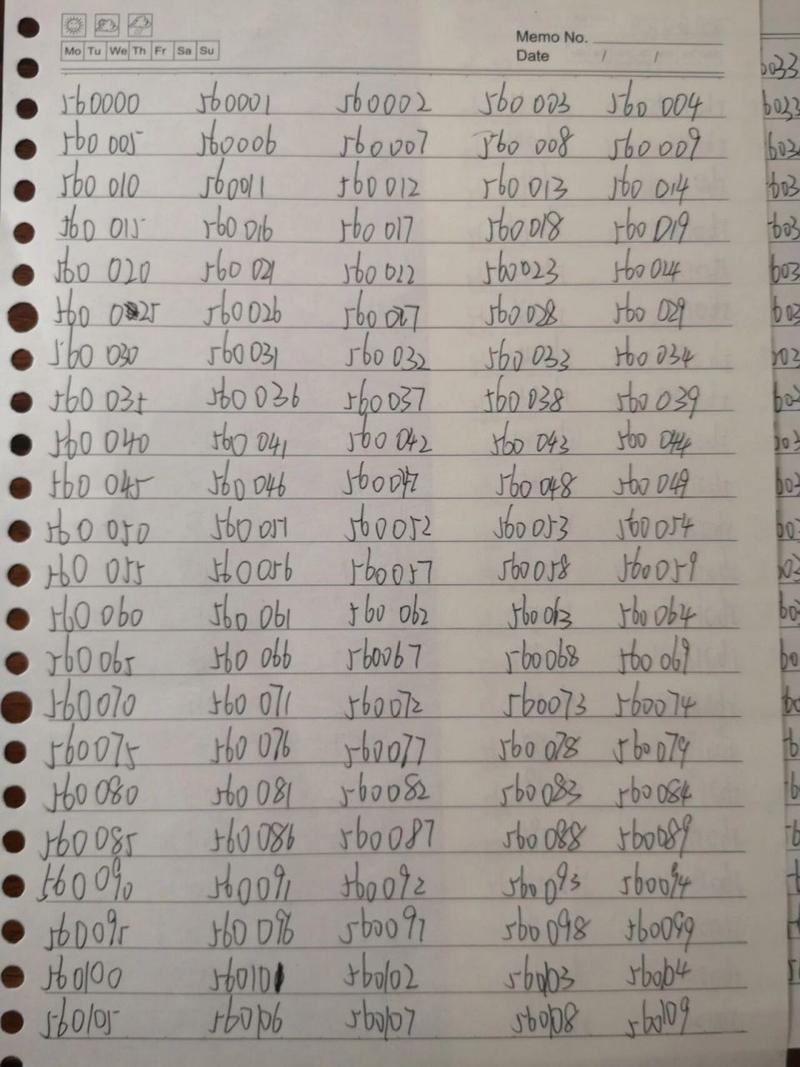 Mo Tu We Th Fr Sa Su
Memo No.
Date / /
560000 560001 560002 560003 560004
560005 560006 560007 560008 560009
560010 560011 560012 560013 560014
560015 560016 560017 560018 560019
560020 560021 560022 560023 560024
560025 560026 560027 560028 560029
560030 560031 560032 560033 560034
560035 560036 560037 560038 560039
560040 560041 560042 560043 560044
560045 560046 560047 560048 560049
560050 560051 560052 560053 560054
560055 560056 560057 560058 560059
560060 560061 560062 560063 560064
560065 560066 560067 560068 560069
560070 560071 560072 560073 560074
560075 560076 560077 560078 560079
560080 560081 560082 560083 560084
560085 560086 560087 560088 560089
560090 560091 560092 560093 560094
560095 560096 560097 560098 560099
560100 560101 560102 560103 560104
560105 560106 560107 560108 560109